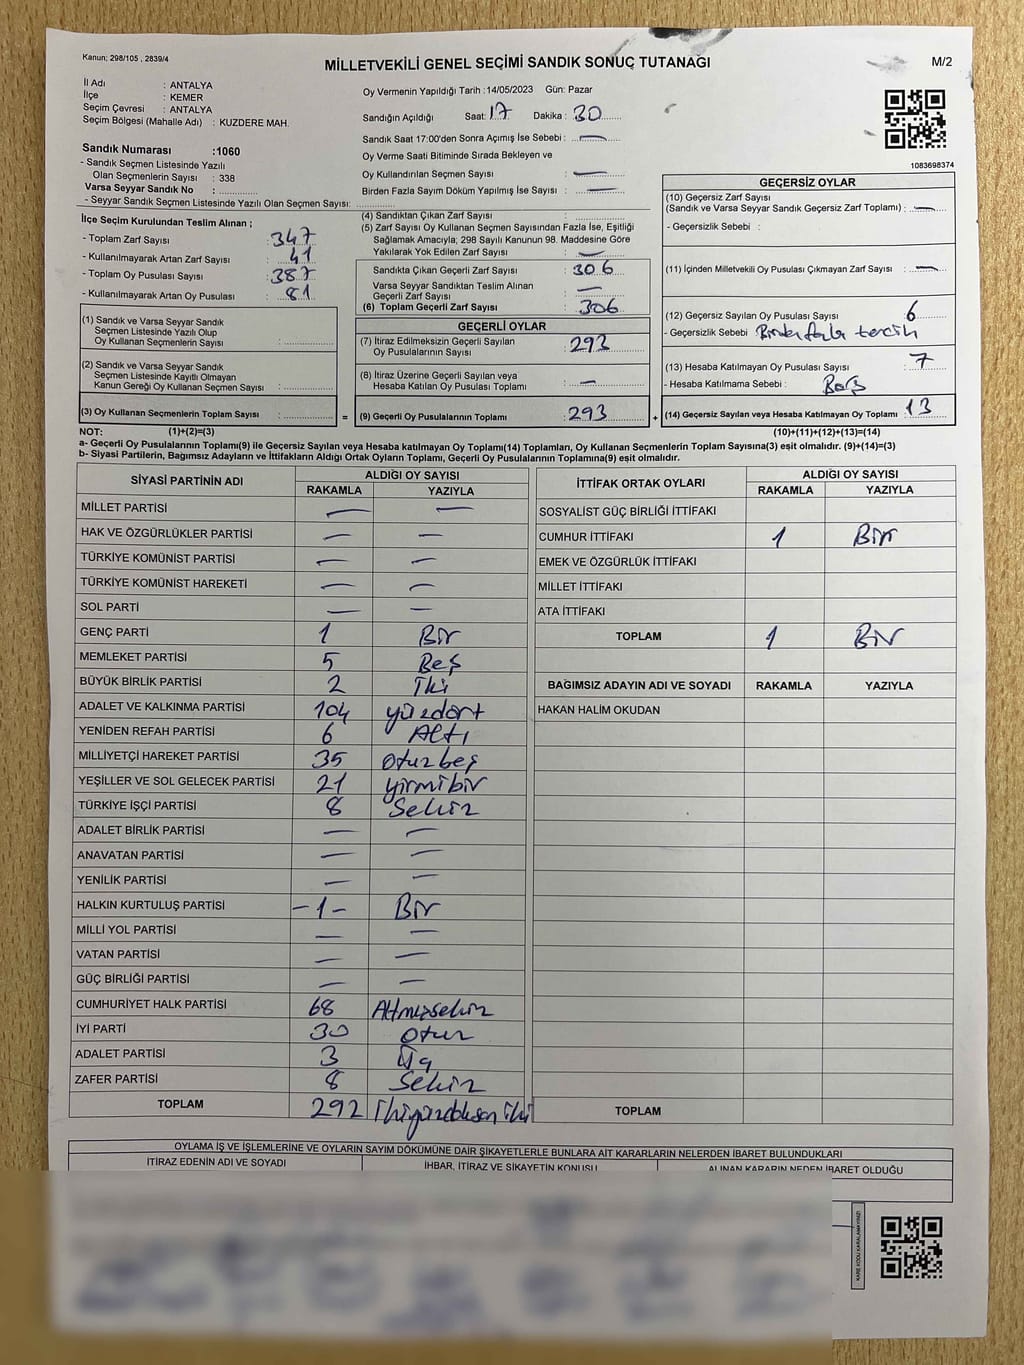 Kanun; 298/105 , 2839/4
MİLLETVEKİLİ GENEL SEÇİMİ SANDIK SONUÇ TUTANAĞI
M/2
İl Adı : ANTALYA
İlçe : KEMER
Seçim Çevresi : ANTALYA
Seçim Bölgesi (Mahalle Adı) : KUZDERE MAH.
Sandık Numarası :1060
- Sandık Seçmen Listesinde Yazılı
Olan Seçmenlerin Sayısı : 338
Varsa Seyyar Sandık No :
- Seyyar Sandık Seçmen Listesinde Yazılı Olan Seçmen Sayısı:
Oy Vermenin Yapıldığı Tarih :14/05/2023 Gün: Pazar
Sandığın Açıldığı Saat: 17 Dakika : 30
Sandık Saat 17:00'den Sonra Açımış İse Sebebi : —
Oy Verme Saati Bitiminde Sırada Bekleyen ve
Oy Kullandırılan Seçmen Sayısı : —
Birden Fazla Sayım Döküm Yapılmış İse Sayısı : —
1083698374
İlçe Seçim Kurulundan Teslim Alınan ;
- Toplam Zarf Sayısı : 347
- Kullanılmayarak Artan Zarf Sayısı : 41
- Toplam Oy Pusulası Sayısı : 387
- Kullanılmayarak Artan Oy Pusulası : 81
(1) Sandık ve Varsa Seyyar Sandık
Seçmen Listesinde Yazılı Olup
Oy Kullanan Seçmenlerin Sayısı :
(2) Sandık ve Varsa Seyyar Sandık
Seçmen Listesinde Kayıtlı Olmayan
Kanun Gereği Oy Kullanan Seçmen Sayısı :
(3) Oy Kullanan Seçmenlerin Toplam Sayısı : =
(4) Sandıktan Çıkan Zarf Sayısı :
(5) Zarf Sayısı Oy Kullanan Seçmen Sayısından Fazla İse, Eşitliği
Sağlamak Amacıyla; 298 Sayılı Kanunun 98. Maddesine Göre
Yakılarak Yok Edilen Zarf Sayısı : —
Sandıkta Çıkan Geçerli Zarf Sayısı : 306
Varsa Seyyar Sandıktan Teslim Alınan
Geçerli Zarf Sayısı : —
(6) Toplam Geçerli Zarf Sayısı : 306
GEÇERLİ OYLAR
(7) İtiraz Edilmeksizin Geçerli Sayılan
Oy Pusulalarının Sayısı : 293
(8) İtiraz Üzerine Geçerli Sayılan veya
Hesaba Katılan Oy Pusulası Toplamı : —
(9) Geçerli Oy Pusulalarının Toplamı : 293 +
GEÇERSİZ OYLAR
(10) Geçersiz Zarf Sayısı
(Sandık ve Varsa Seyyar Sandık Geçersiz Zarf Toplamı) : —
- Geçersizlik Sebebi :
(11) İçinden Milletvekili Oy Pusulası Çıkmayan Zarf Sayısı : —
(12) Geçersiz Sayılan Oy Pusulası Sayısı : 6
- Geçersizlik Sebebi : Birden fazla tercih
(13) Hesaba Katılmayan Oy Pusulası Sayısı : 7
- Hesaba Katılmama Sebebi : Boş
(14) Geçersiz Sayılan veya Hesaba Katılmayan Oy Toplamı : 13
NOT: (1)+(2)=(3) (10)+(11)+(12)+(13)=(14)
a- Geçerli Oy Pusulalarının Toplamı(9) ile Geçersiz Sayılan veya Hesaba katılmayan Oy Toplamı(14) Toplamları, Oy Kullanan Seçmenlerin Toplam Sayısına(3) eşit olmalıdır. (9)+(14)=(3)
b- Siyasi Partilerin, Bağımsız Adayların ve İttifakların Aldığı Ortak Oyların Toplamı, Geçerli Oy Pusulalarının Toplamına(9) eşit olmalıdır.
SİYASİ PARTİNİN ADI ALDIĞI OY SAYISI
RAKAMLA YAZIYLA
MİLLET PARTİSİ — —
HAK VE ÖZGÜRLÜKLER PARTİSİ — —
TÜRKİYE KOMÜNİST PARTİSİ — —
TÜRKİYE KOMÜNİST HAREKETİ — —
SOL PARTİ — —
GENÇ PARTİ 1 Bir
MEMLEKET PARTİSİ 5 Beş
BÜYÜK BİRLİK PARTİSİ 2 İki
ADALET VE KALKINMA PARTİSİ 104 yüzdört
YENİDEN REFAH PARTİSİ 6 Altı
MİLLİYETÇİ HAREKET PARTİSİ 35 otuzbeş
YEŞİLLER VE SOL GELECEK PARTİSİ 21 yirmibir
TÜRKİYE İŞÇİ PARTİSİ 8 Sekiz
ADALET BİRLİK PARTİSİ — —
ANAVATAN PARTİSİ — —
YENİLİK PARTİSİ — —
HALKIN KURTULUŞ PARTİSİ -1- Bir
MİLLİ YOL PARTİSİ — —
VATAN PARTİSİ — —
GÜÇ BİRLİĞİ PARTİSİ — —
CUMHURİYET HALK PARTİSİ 68 Altmışsekiz
İYİ PARTİ 30 otuz
ADALET PARTİSİ 3 Üç
ZAFER PARTİSİ 8 Sekiz
TOPLAM 292 İkiyüzdoksan iki
İTTİFAK ORTAK OYLARI ALDIĞI OY SAYISI
RAKAMLA YAZIYLA
SOSYALİST GÜÇ BİRLİĞİ İTTİFAKI
CUMHUR İTTİFAKI 1 Bir
EMEK VE ÖZGÜRLÜK İTTİFAKI
MİLLET İTTİFAKI
ATA İTTİFAKI
TOPLAM 1 Bir
BAĞIMSIZ ADAYIN ADI VE SOYADI RAKAMLA YAZIYLA
HAKAN HALİM OKUDAN
TOPLAM
OYLAMA İŞ VE İŞLEMLERİNE VE OYLARIN SAYIM DÖKÜMÜNE DAİR ŞİKAYETLERLE BUNLARA AİT KARARLARIN NELERDEN İBARET BULUNDUKLARI
İTİRAZ EDENİN ADI VE SOYADI
İHBAR, İTİRAZ VE ŞİKAYETİN KONUSU
ALINAN KARARIN NEDEN İBARET OLDUĞU
KARE KODU KARALAMAYINIZ!